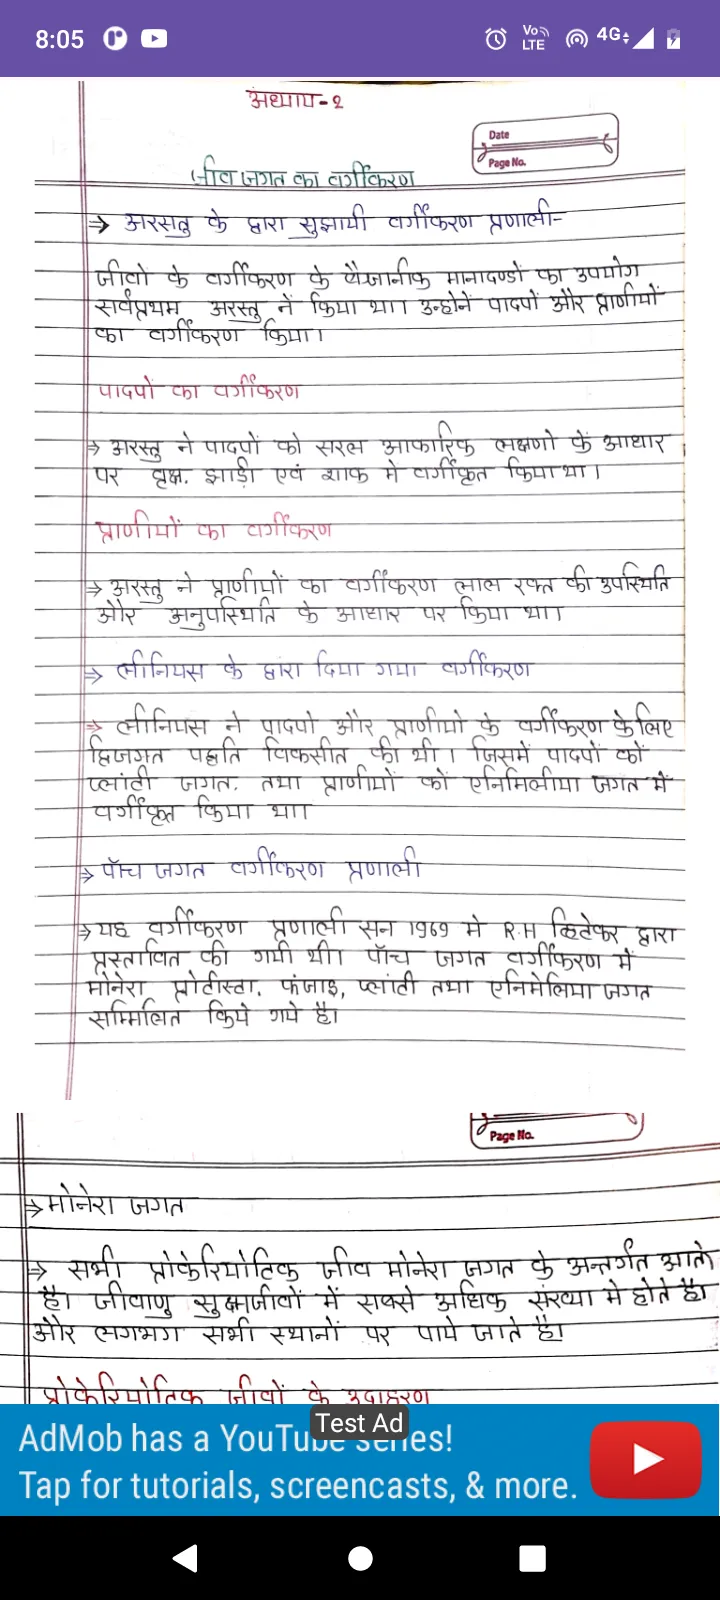 8:05
Vo LTE
4G
अध्याय-2
Date
Page No.
जीव जगत का वर्गीकरण
⇒ अरस्तु के द्वारा सुझायी वर्गीकरण प्रणाली-
जीवो के वर्गीकरण के वैज्ञानीक मानादण्डों का उपयोग
सर्वप्रथम अरस्तु नें किया था। उन्होनें पादपों और प्राणीयों
का वर्गीकरण किया।
पादपों का वर्गीकरण
⇒ अरस्तु ने पादपों को सरल आकारिक लक्षणो के आधार
पर वृक्ष. झाड़ी एवं शाक मे वर्गीकृत किया था।
प्राणीयों का वर्गीकरण
⇒ अरस्तु ने प्राणीयों का वर्गीकरण लाल रक्त की उपस्थिति
और अनुपस्थिति के आधार पर किया था।
⇒ लीनियस के द्वारा दिया गया वर्गीकरण
⇒ लीनियस ने पादपो और प्राणीयो के वर्गीकरण के लिए
द्विजगत पद्वति विकसीत की थी। जिसमें पादपों कों
प्लांटी जगत. तथा प्राणीयों कों एनिमिलीया जगत में
वर्गीकृत किया था।
⇒ पॉच जगत वर्गीकरण प्रणाली
⇒ यह वर्गीकरण प्रणाली सन 1969 मे R.H व्हिटेकर द्वारा
प्रस्तावित की गयी थी। पॉच जगत वर्गीकरण में
मोनेरा प्रोटीस्टा. फंजाइ, प्लांटी तथा एनिमेलिया जगत
सम्मिलित किये गये है।
Page No.
⇒ मोनेरा जगत
⇒ सभी प्रोकेरियोटिक जीव मोनेरा जगत के अन्तर्गत आते
है। जीवाणु सुक्ष्मजीवों में सबसे अधिक संख्या मे होते है।
और लगभग सभी स्थानों पर पाये जाते है।
प्रोकेरियोटिक जीवों के उदाहरण
Test Ad
AdMob has a YouTube series!
Tap for tutorials, screencasts, & more.